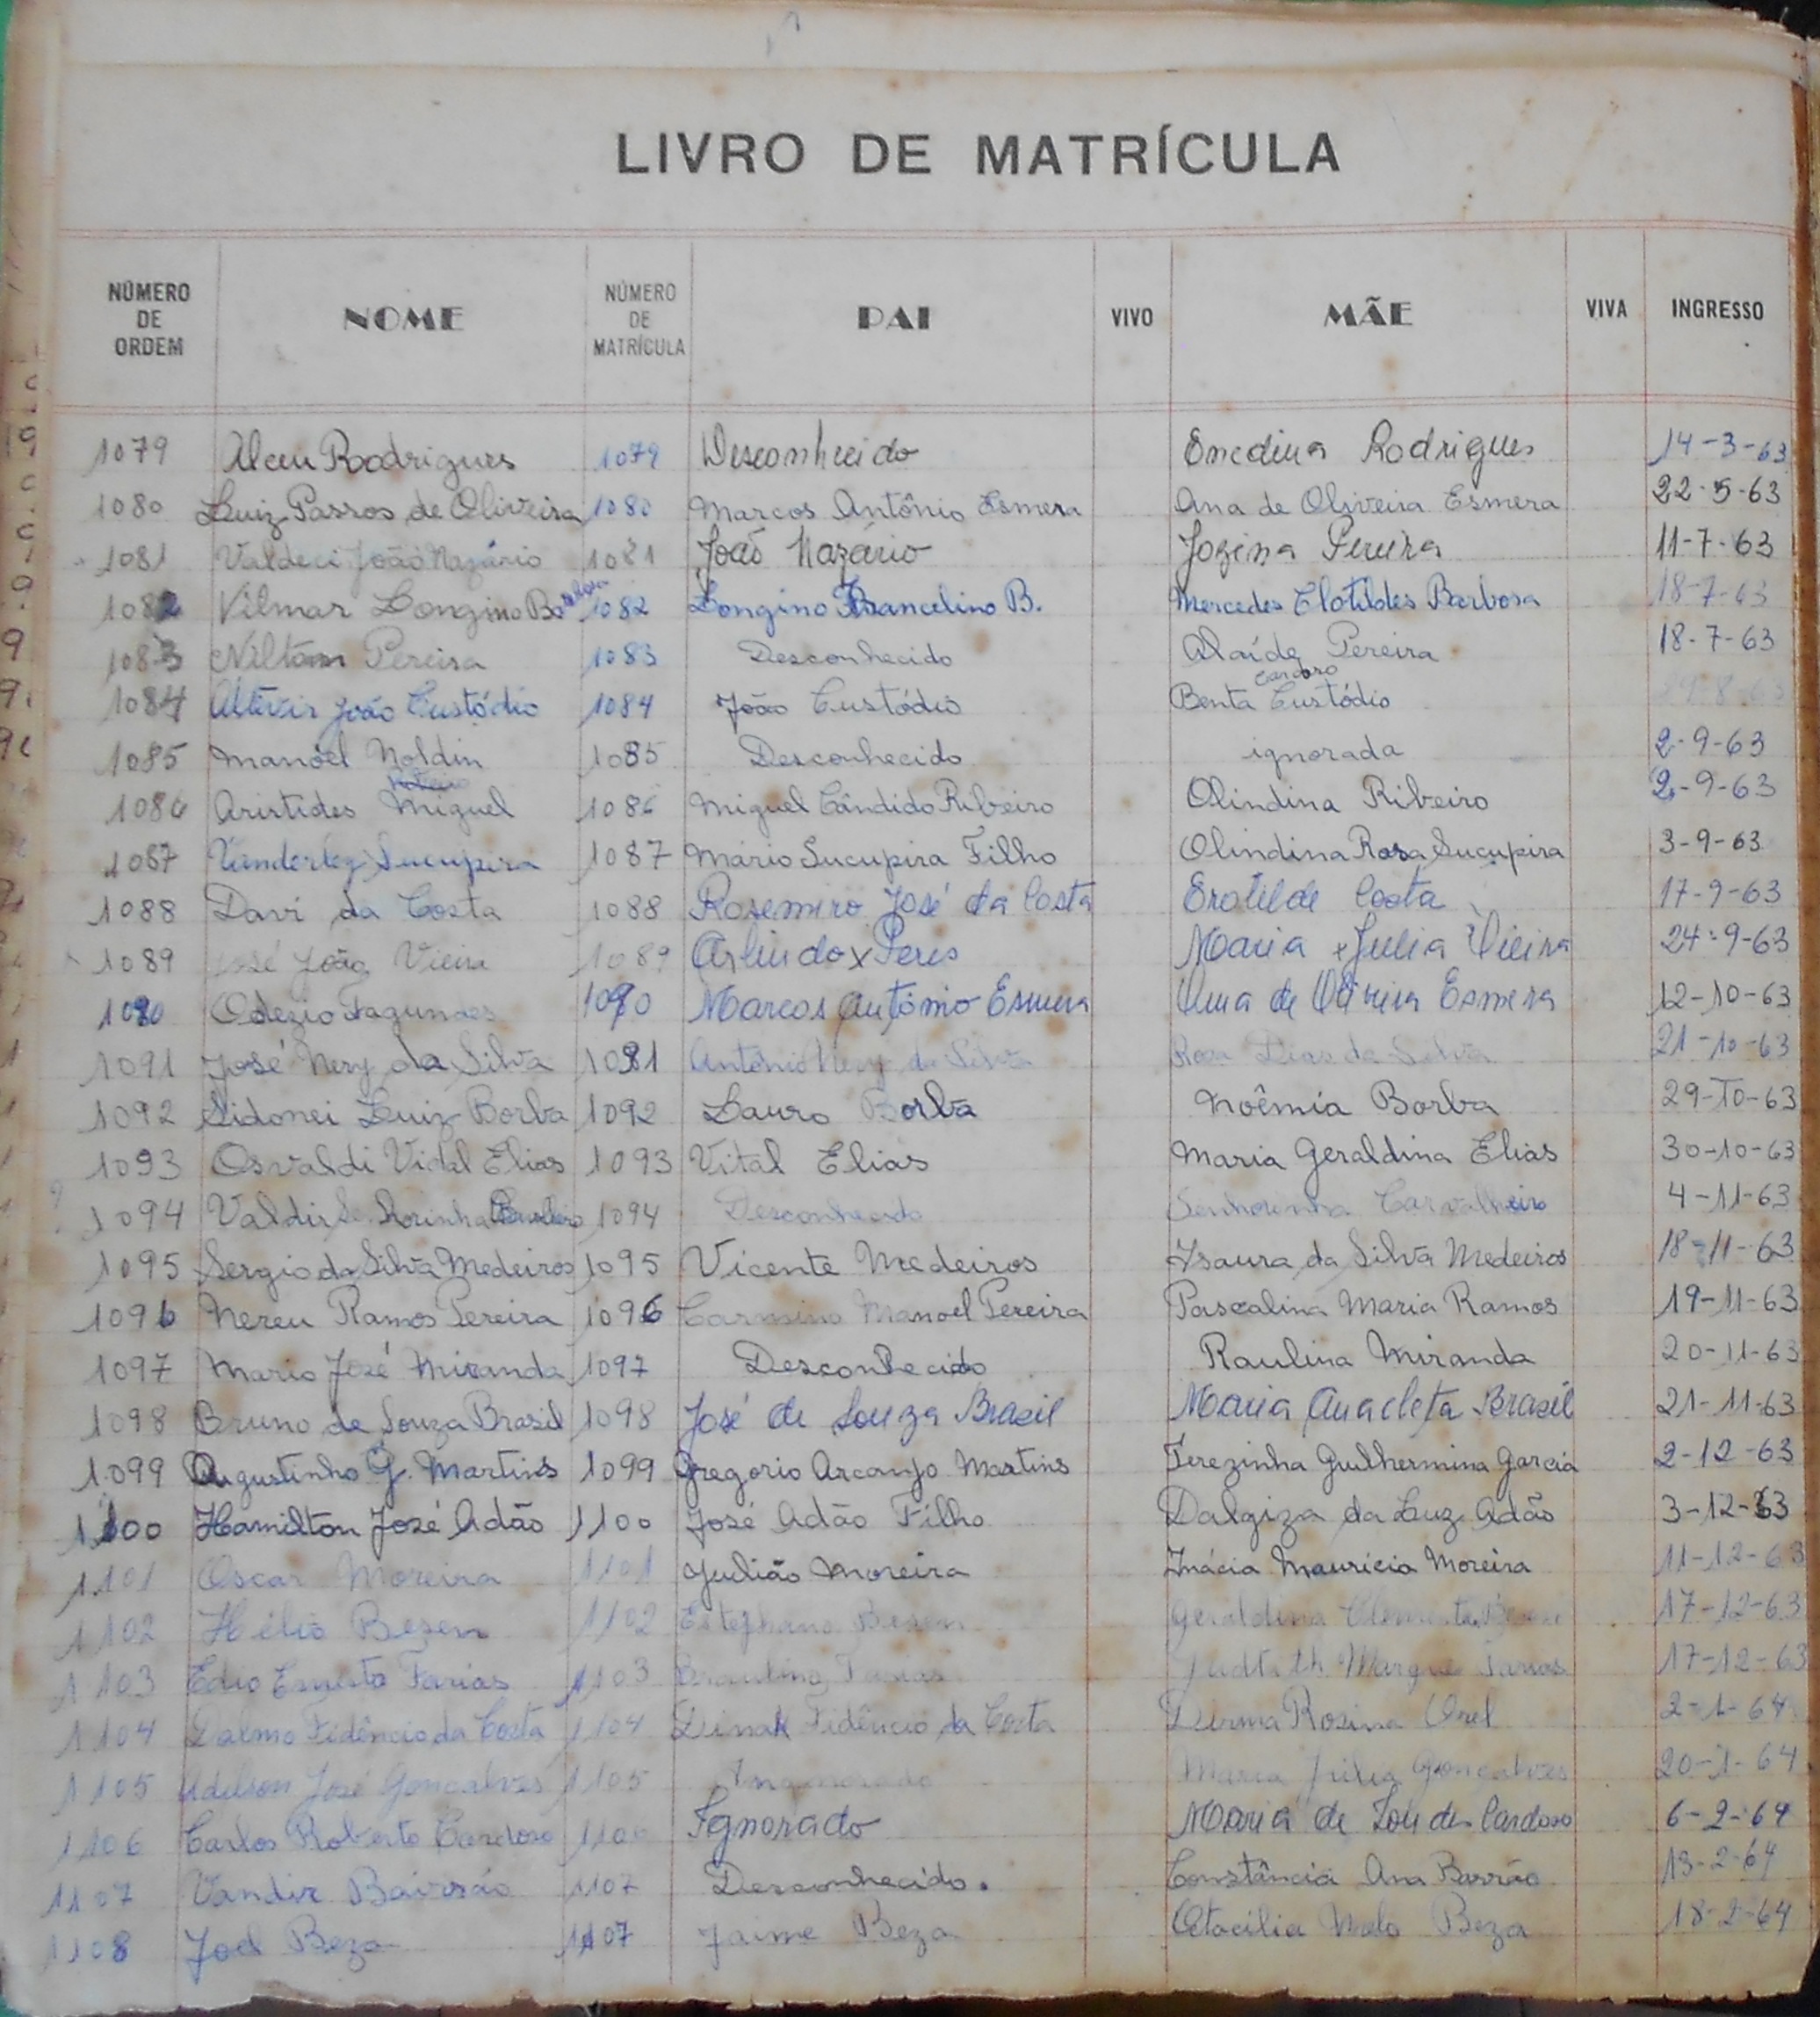 LIVRO DE MATRÍCULA
NÚMERO DE ORDEM NOME NÚMERO DE MATRÍCULA PAI VIVO MÃE VIVA INGRESSO
1079 Alceu Roodrigues 1079 Desconhecido Enedina Rodrigues 14-3-63
1080 Luiz Passos de Oliveira 1080 Marcos Antônio Esmera Ana de Oliveira Esmera 22-5-63
1081 Valdeci João Nazário 1081 João Nazário Jozina Pereira 11-7-63
1082 Vilmar Longino Barbosa 1082 Longino Francelino B. Mercedes Clotildes Barbosa 18-7-63
1083 Niltom Pereira 1083 Desconhecido Alaíde Pereira 18-7-63
1084 Altevir João Custódio 1084 João Custódio Benta Cardoso Custódio
1085 Manoel Noldin 1085 Desconhecido ignorada 2-9-63
1086 Aristides Miguel Ribeiro 1086 Miguel Cândido Ribeiro Olindina Ribeiro 2-9-63
1087 Vanderley Sucupira 1087 Mário Sucupira Filho Olindina Rosa Sucupira 3-9-63
1088 Davi da Costa 1088 Rosemiro José da Costa Erotilde Costa 17-9-63
1089 José João Vieira 1089 Arlindo x Peres Maria x Julia Vieira 24-9-63
1090 Odezio Fagundes 1090 Marcos Antônio Esmera Ana de Oliveira Esmera 12-10-63
1091 José Nery da Silva 1091 Antônio Nery da Silva Rosa Dias da Silva 21-10-63
1092 Sidonei Luiz Borba 1092 Lauro Borba Noêmia Borba 29-10-63
1093 Osvaldi Vidal Elias 1093 Vital Elias Maria Geraldina Elias 30-10-63
1094 Valdir 1094 Desconhecido Senhorinha Carvalheiro 4-11-63
1095 Sergio da Silva Medeiros 1095 Vicente Medeiros Isaura da Silva Medeiros 18-11-63
1096 Nereu Ramos Pereira 1096 Carmino Manoel Pereira Pascalina Maria Ramos 19-11-63
1097 Mario José Miranda 1097 Desconhecido Raulina Miranda 20-11-63
1098 Bruno de Souza Brasil 1098 José de Souza Brasil Maria Anacleta Brasil 21-11-63
1099 Augustinho G. Martins 1099 Gregorio Arcanjo Martins Terezinha Guilhermina Garcia 2-12-63
1100 Hamilton José Adão 1100 José Adão Filho Dalgiza da Luz Adão 3-12-63
1101 Oscar Moreira 1101 Julião Moreira Inácia Mauricia Moreira 11-12-63
1102 Hélio Besen 1102 Estephano Besen Geraldina 17-12-63
1103 Edio Ernesto Farias 1103 Farias Marques Farias 17-12-63
1104 Dalmo Fidêncio da Costa 1104 Fidêncio da Costa Rosina 2-1-64
1105 Adilson José Gonçalves 1105 Maria Júlia Gonçalves 20-1-64
1106 Carlos Roberto Cardoso 1106 Ignorado Maria de Lourdes Cardoso 6-2-64
1107 Vandir 1107 Desconhecido. Constância Ana Barrão 13-2-64
1108 Joel Beza 1107 Jaime Beza Otacilia Melo Beza 18-2-64